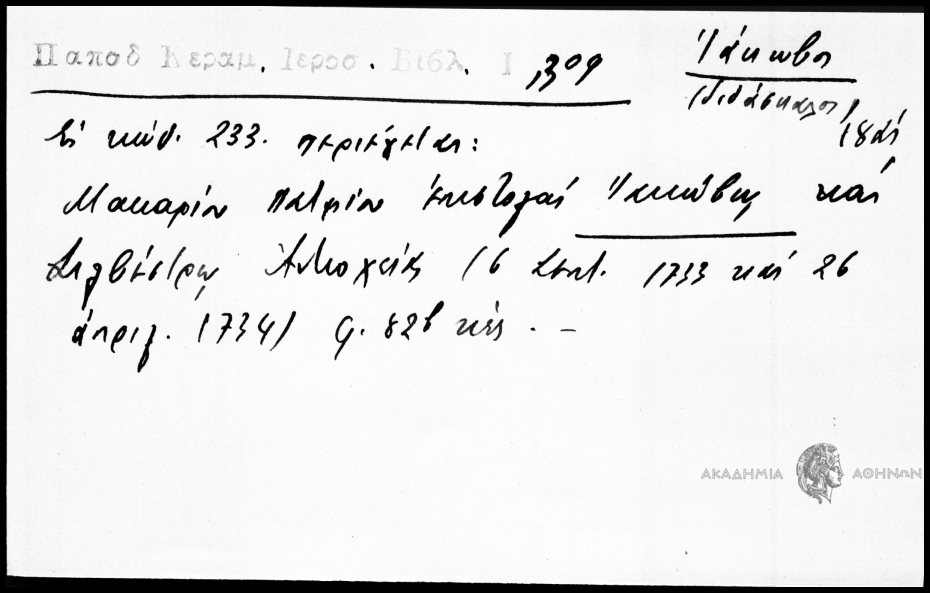 Παπαδ Κεραμ. Ιεροσ. Βιβλ. Ι, 309
Ἰάκωβος
(διδάσκαλος)
18ος
Ἐν κώδ. 233. περιέχεται:
Μακαρίου Πατμίου ἐπιστολαί Ἰακώβῳ καί
Σιλβέστρῳ Ἀντιοχείας (6 Σεπτ. 1733 καί 26
ἀπριλ. 1734) φ. 82β κἑξ. –
ΑΚΑΔΗΜΙΑ ΑΘΗΝΩΝ